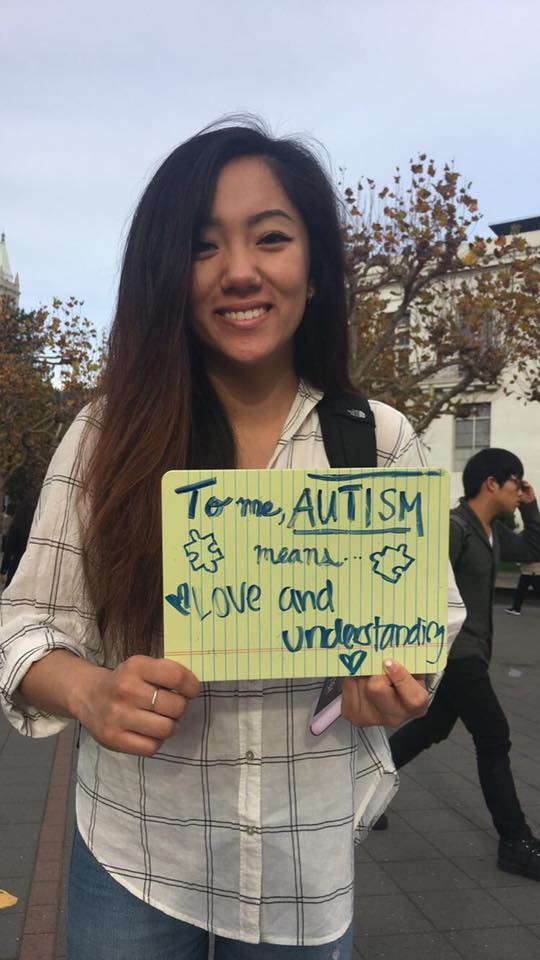 To me, AUTISM
means...
LOVE and
understanding